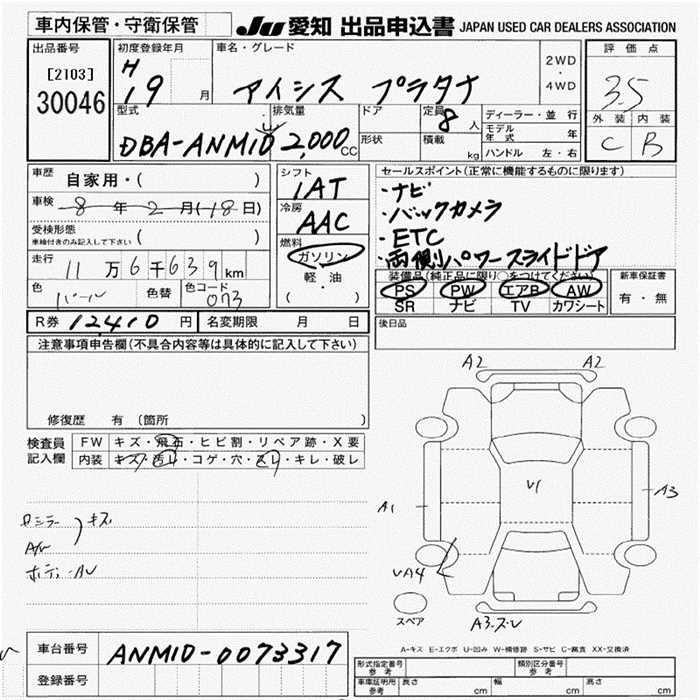 車内保管・守衛保管
JU 愛知 出品申込書 JAPAN USED CAR DEALERS ASSOCIATION
出品番号
[2103]
30046
初度登録年月
H19 月
車名・グレード
アイシス プラタナ
2WD
・
4WD
評価点
3.5
外装 内装
C B
型式
DBA-ANM10
排気量
2,000cc
ドア
形状
定員
8人
積載
kg
ディーラー・並行
モデル年式 年
ハンドル 左・右
車歴
自家用・( )
車検
8年2月(18日)
受検形態
車検付きのみ記入して下さい ( )
走行
11万6千639km
色
色替
色コード
073
シフト
IAT
冷房
AAC
燃料
ガソリン
軽・油
( ・ )
セールスポイント(正常に機能するものに限ります)
・ナビ
・バックカメラ
・ETC
・両側パワースライドドア
装備品(純正品に限り○をつけてください)
PS PW エアB AW
SR ナビ TV カワシート
新車保証書
有・無
R券 12,410円
名変期限 月 日
後日品
注意事項申告欄(不具合内容等は具体的に記入して下さい)
修復歴 有(箇所 )
検査員記入欄
FW キズ・飛石・ヒビ割・リペア跡・X要
内装 キズ・汚レ・コゲ・穴・スレ・キレ・破レ
キズ
A/W
A2 A2
V1
A1
A3
VA4
スペア
A-キズ E-エクボ U-凹み W-補修跡 S-サビ C-腐食 XX-交換済
車台番号
ANM10-0073317
登録番号
形式指定番号
参考
類別区分番号
参考
車庫証明用
参考
長さ cm 幅 cm 高さ cm